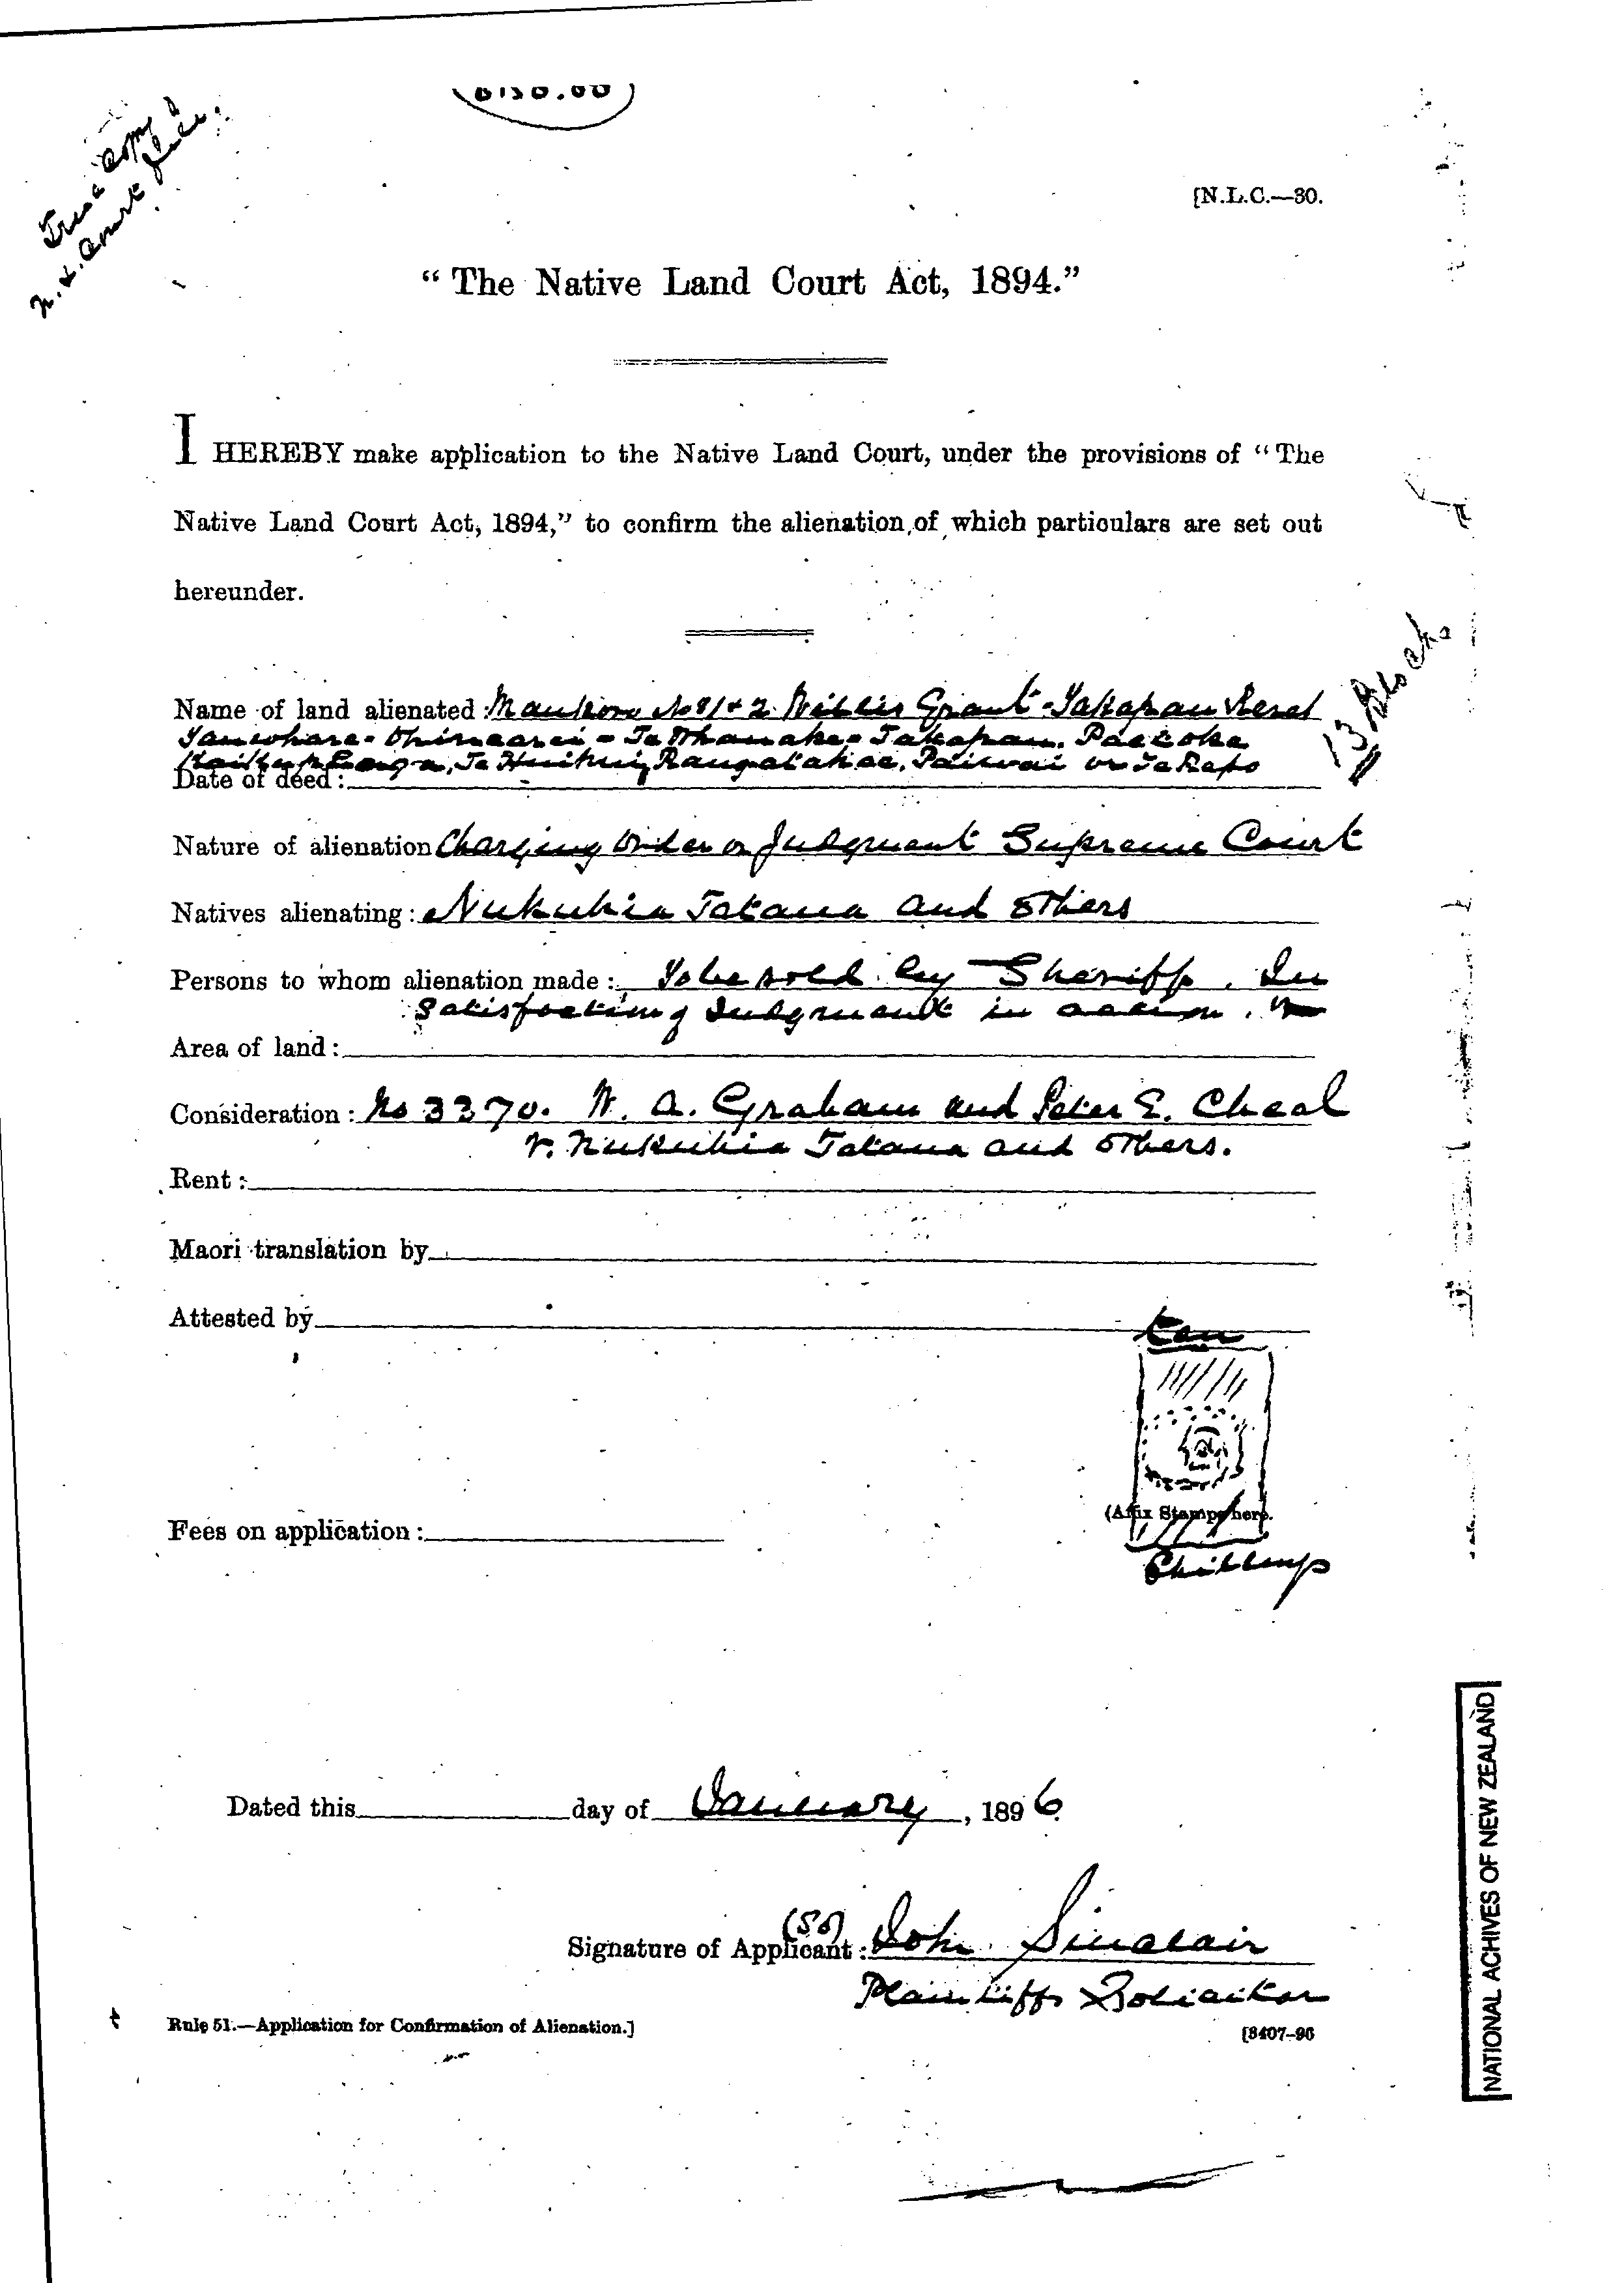 True Copy
N. L. Court file.
[N.L.C.—30.
“The Native Land Court Act, 1894.”
I HEREBY make application to the Native Land Court, under the provisions of “The
Native Land Court Act, 1894,” to confirm the alienation of which particulars are set out
hereunder.
13 Blocks
Name of land alienated: No 1 & 2 Willis Grant - Takapau
Te Whanake - Takapau. Paeroke
Te Huihui, Rangatahae, Pairwai or Te Repo
Date of deed:
Nature of alienation Charging Order on Judgment Supreme Court
Natives alienating: Nukuhia Tatana and others
Persons to whom alienation made: To be sold by Sheriff. In
satisfaction of Judgment in action.
Area of land:
Consideration: No 3370. W. A. Graham and Peter E. Cheal
v. Nukuhia Tatana and others.
Rent:
Maori translation by
Attested by
Ten
(Affix Stamps here.
Fees on application:
Shillings
Dated this day of January, 1896
Signature of Applicant: (Sd) John Sinclair
Plaintiffs Solicitor
Rule 51.—Application for Confirmation of Alienation.]
[8407–96
NATIONAL ACHIVES OF NEW ZEALAND